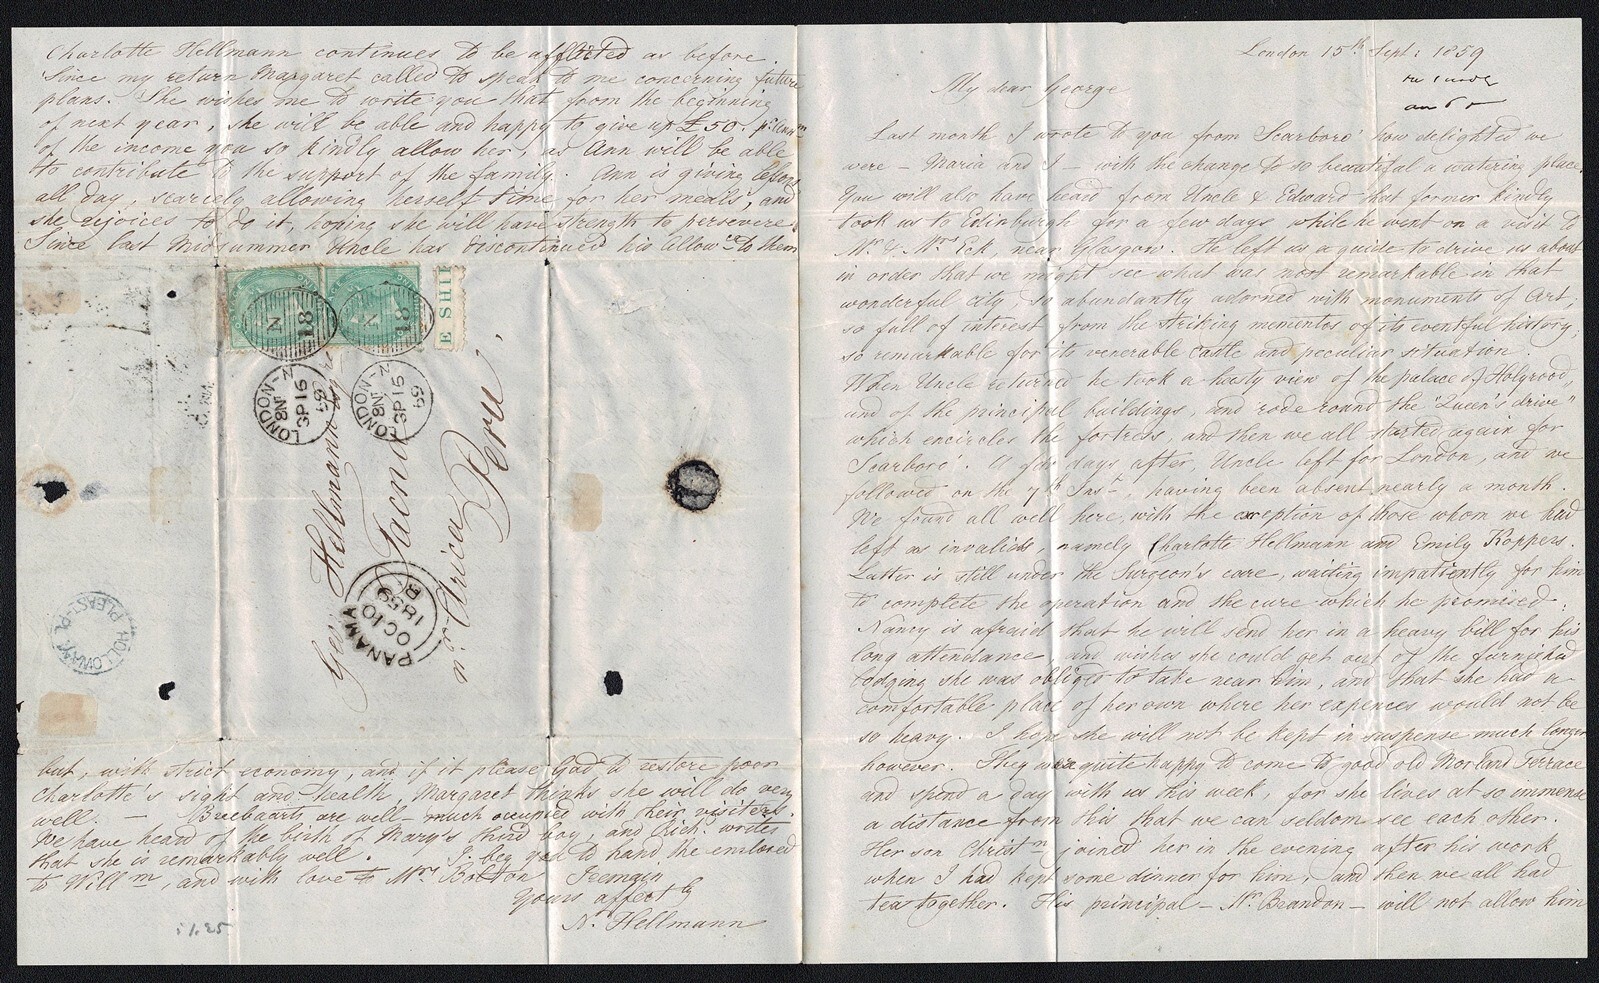 London 15th Sept: 1859
My dear George
Last month I wrote to you from Scarboro' how delighted we
were - Maria and I - with the change to so beautiful a watering place
You will also have heard from Uncle & Edward that former kindly
took us to Edinburgh for a few days while he went on a visit to
Mr. & Mrs Eck near Glasgow. He left us a guide to drive us about
in order that we might see what was most remarkable in that
wonderful city, so abundantly adorned with monuments of Art;
so full of interest from the striking mementos of its eventful history;
so remarkable for its venerable Castle and peculiar situation.
When Uncle returned he took a hasty view of the palace of Holyrood,
and of the principal buildings, and rode round the "Queen's drive"
which encircles the fortress, and then we all started again for
Scarboro'. A few days after, Uncle left for London, and we
followed on the 7th Inst., having been absent nearly a month.
We found all well here, with the exception of those whom we had
left as invalids, namely Charlotte Hellmann and Emily Koppers.
Latter is still under the Surgeon's care, waiting impatiently for him
to complete the operation and the cure which he promised.
Nancy is afraid that he will send her in a heavy bill for his
long attendance and wishes she could get out of the furnished
lodging she was obliged to take near him, and that she had a
comfortable place of her own where her expences would not be
so heavy. I hope she will not be kept in suspense much longer
however. They were quite happy to come to good old Morland Terrace
and spend a day with us this week, for she lives at so immense
a distance from this that we can seldom see each other.
Her son Christn joined her in the evening after his work
when I had kept some dinner for him, and then we all had
tea together. His principal - Mr. Brandon - will not allow him
Charlotte Hellmann continues to be afflicted as before.
Since my return Margaret called to speak to me concerning future
plans. She wishes me to write you that from the beginning
of next year, she will be able and happy to give up £50. pr Annm
of the income you so kindly allow her, as Ann will be able
to contribute to the support of the family. Ann is giving lessons
all day, scarcely allowing herself time for her meals, and
she rejoices to do it, hoping she will have strength to persevere.
Since last Midsummer Uncle has discontinued his allowce to them
E SHI
N
18
N
18
LONDON-N
8NT
SP16
59
LONDON-N
8NT
SP16
59
Geo: Hellmann Esqre
Tacna
nr Arica
Peru
PANAMA
OC10
1859
B
HOLLOWAY
PLEAST-PL
but, with strict economy, and if it please God to restore poor
Charlotte's sight and health, Margaret thinks she will do very
well. - Breebaarts are well - much occupied with their visiters.
We have heard of the birth of Mary's third boy, and Rich. writes
that she is remarkably well. I beg you to hand the enclosed
to Willm, and with love to Mrs Bolton I remain
Yours affectly
N. Hellmann